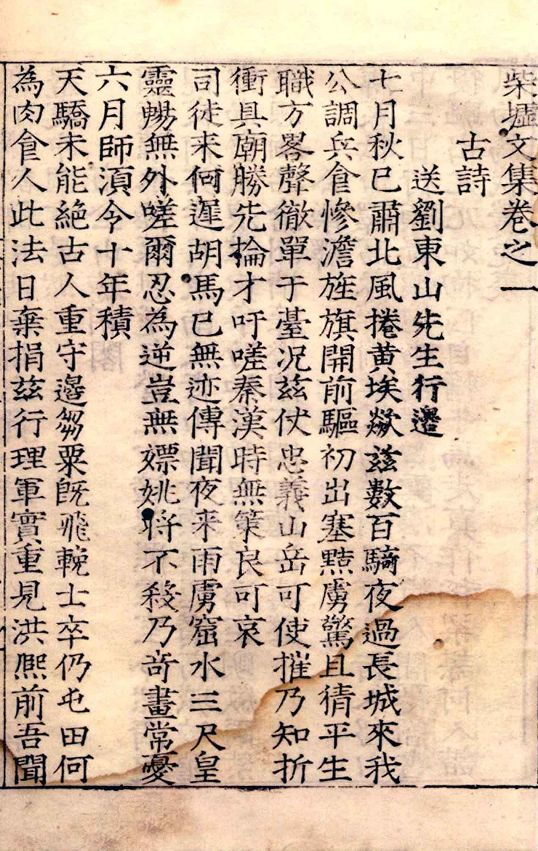 柴墟文集卷之一
古詩
送劉東山先生行邊
七月秋已肅北風捲黃埃歘茲數百騎夜過長城來我
公調兵食慘澹旌旗開前驅初出塞黠虜驚且猜平生
職方畧聲徹單于臺况茲仗忠義山岳可使摧乃知折
衝具廟勝先掄才吁嗟秦漢時無策良可哀
司徒来何遲胡馬已無迹傳聞夜来雨虜窟水三尺皇
靈暢無外嗟爾忍為逆豈無嫖姚將不殺乃奇畫常憂
六月師湏今十年積
天驕未能絕古人重守邊芻粟旣飛輓士卒仍屯田何
為肉食人此法日棄捐茲行理軍實重見洪熈前吾聞